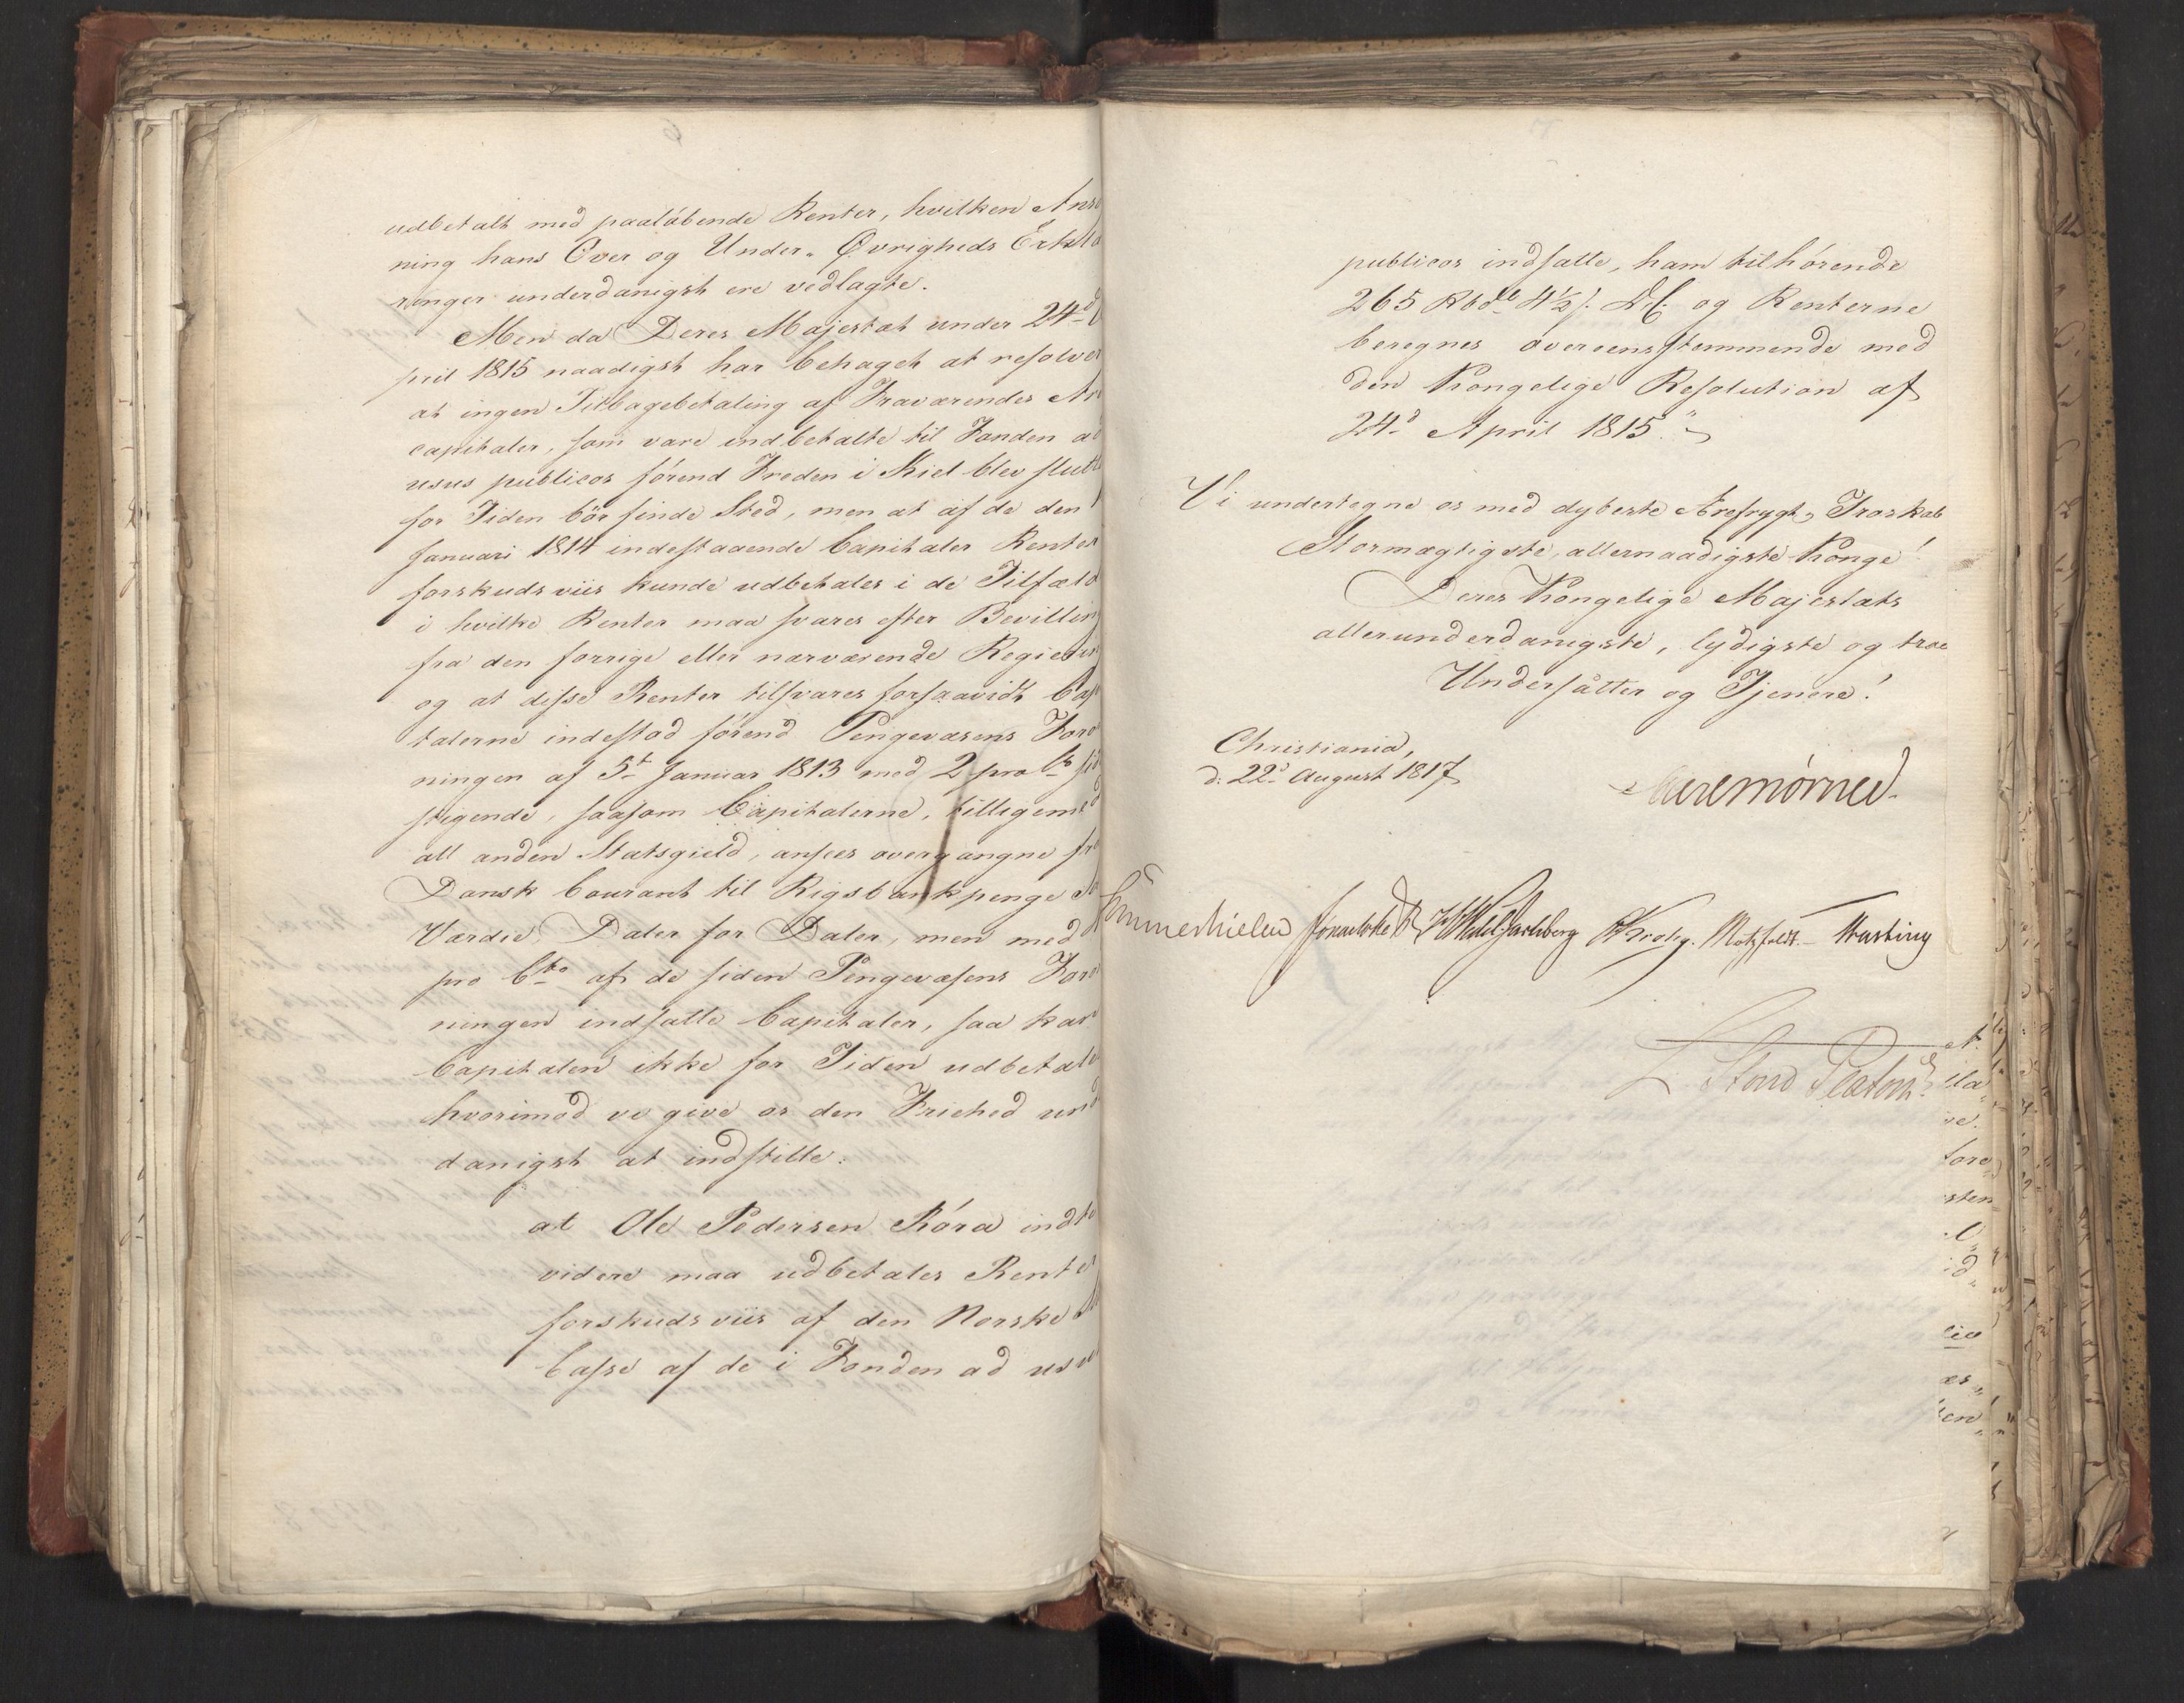 udbetalt med paaløbende Renter, hvilken Ansø
ning hans Over og Under-Øvrigheds Erklæ
ringer underdanigst ere vedlagte.
Men da Deres Majestæt under 24d A
pril 1815 naadigst har behaget at resolver
at ingen Tilbagebetaling af Fraværendes Ar
capitaler, som vare indbetalte til Fonden ad
usus publicos førend Freden i Kiel blev slutt
for Tiden bör finde Sted, men at af de den 1
Januari 1814 indestaaende Capitaler Renter
forskudsviis kunde udbetales i de Tilfæld
i hvilke Renter maa svares efter Bevilling
fra den forrige eller nærværende Regiering
og at disse Renter tilsvares forsaavidt Capi
talerne indestod førend Pengevæsens Foror
ningen af 5t Januar 1813 med 2 pro Ct
stigende, saasom Capitalerne, tilligemed
all anden Statsgield, ansees overgangne fra
Dansk Courant til Rigsbankpenge
Værdie, Daler for Daler, men med
pro Cto af de siden Pengevæsens Foror
ningen indsatte Capitaler, saa kan
Capitalen ikke for Tiden udbetales
hvorimod vi give os den Friehed und
danigst at indstille:
at Ole Pedersen Röra indtil
videre maa udbetales Renter
forskudsviis af den Norske
Casse af de i Fonden ad usus
publicos indsatte, ham tilhørende
265 Rbdl 4½ s. DC. og Renterne
beregnes overeensstemmende med
den Kongelige Resolution af
24d April 1815."
Vi undertegne os med dybeste Ærefrygt, Troskab
Stormægtigste, allernaadigste Konge!
Deres Kongelige Majestæts
allerunderdanigste, lydigste og troe
Undersåtter og Tjenere!
Christiania,
d: 22d August 1817
Mörner
Sommerhielm HWedelJarlsberg Krohg. Motzfeldt. Fasting
L. Stoud Platou